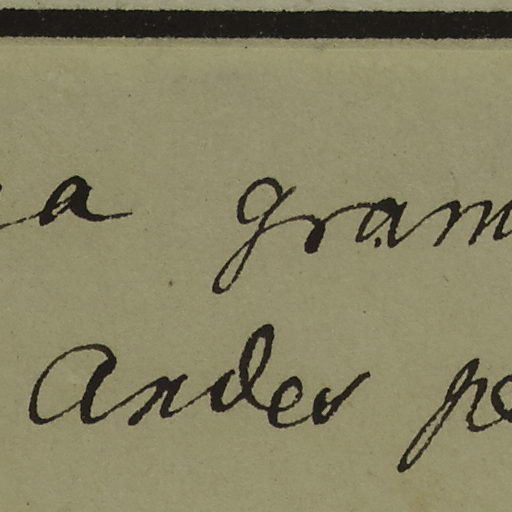 a gram
Andes pe